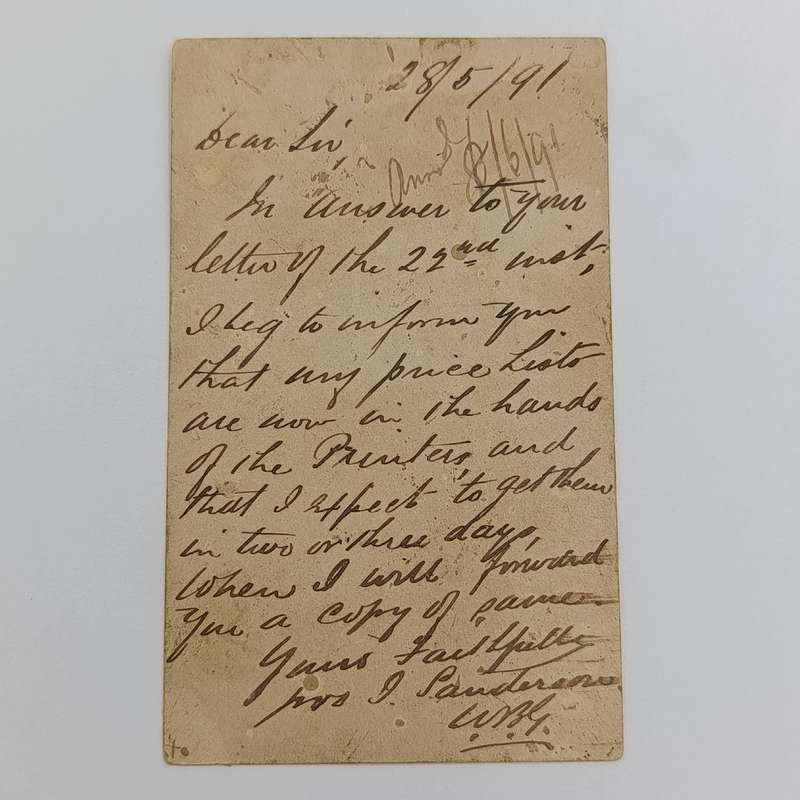 28/5/91
Dear Sir,
8/6/91
In answer to your
letter of the 22nd inst,
I beg to inform you
that my price Lists
are now in the hands
of the Printers, and
that I expect to get them
in two or three days,
when I will forward
you a copy of same
Yours Faithfully
pro J. Sanderson
W.B.G.